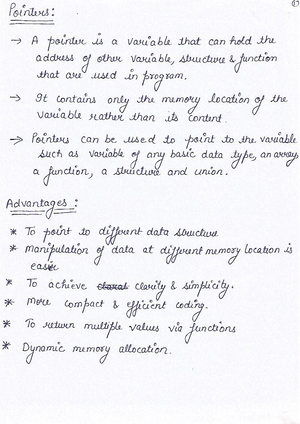 Pointers:
→ A pointer is a variable that can hold the
address of other variable, structure & function
that are used in program.
→ It contains only the memory location of the
variable rather than its content.
→ Pointers can be used to point to the variable
such as variable of any basic data type, an array,
a function, a structure and union.
Advantages:
* To point to different data structure
* manipulation of data at different memory location is
easier
* To achieve clarity & simplicity.
* more compact & efficient coding.
* To return multiple values via functions
* Dynamic memory allocation.